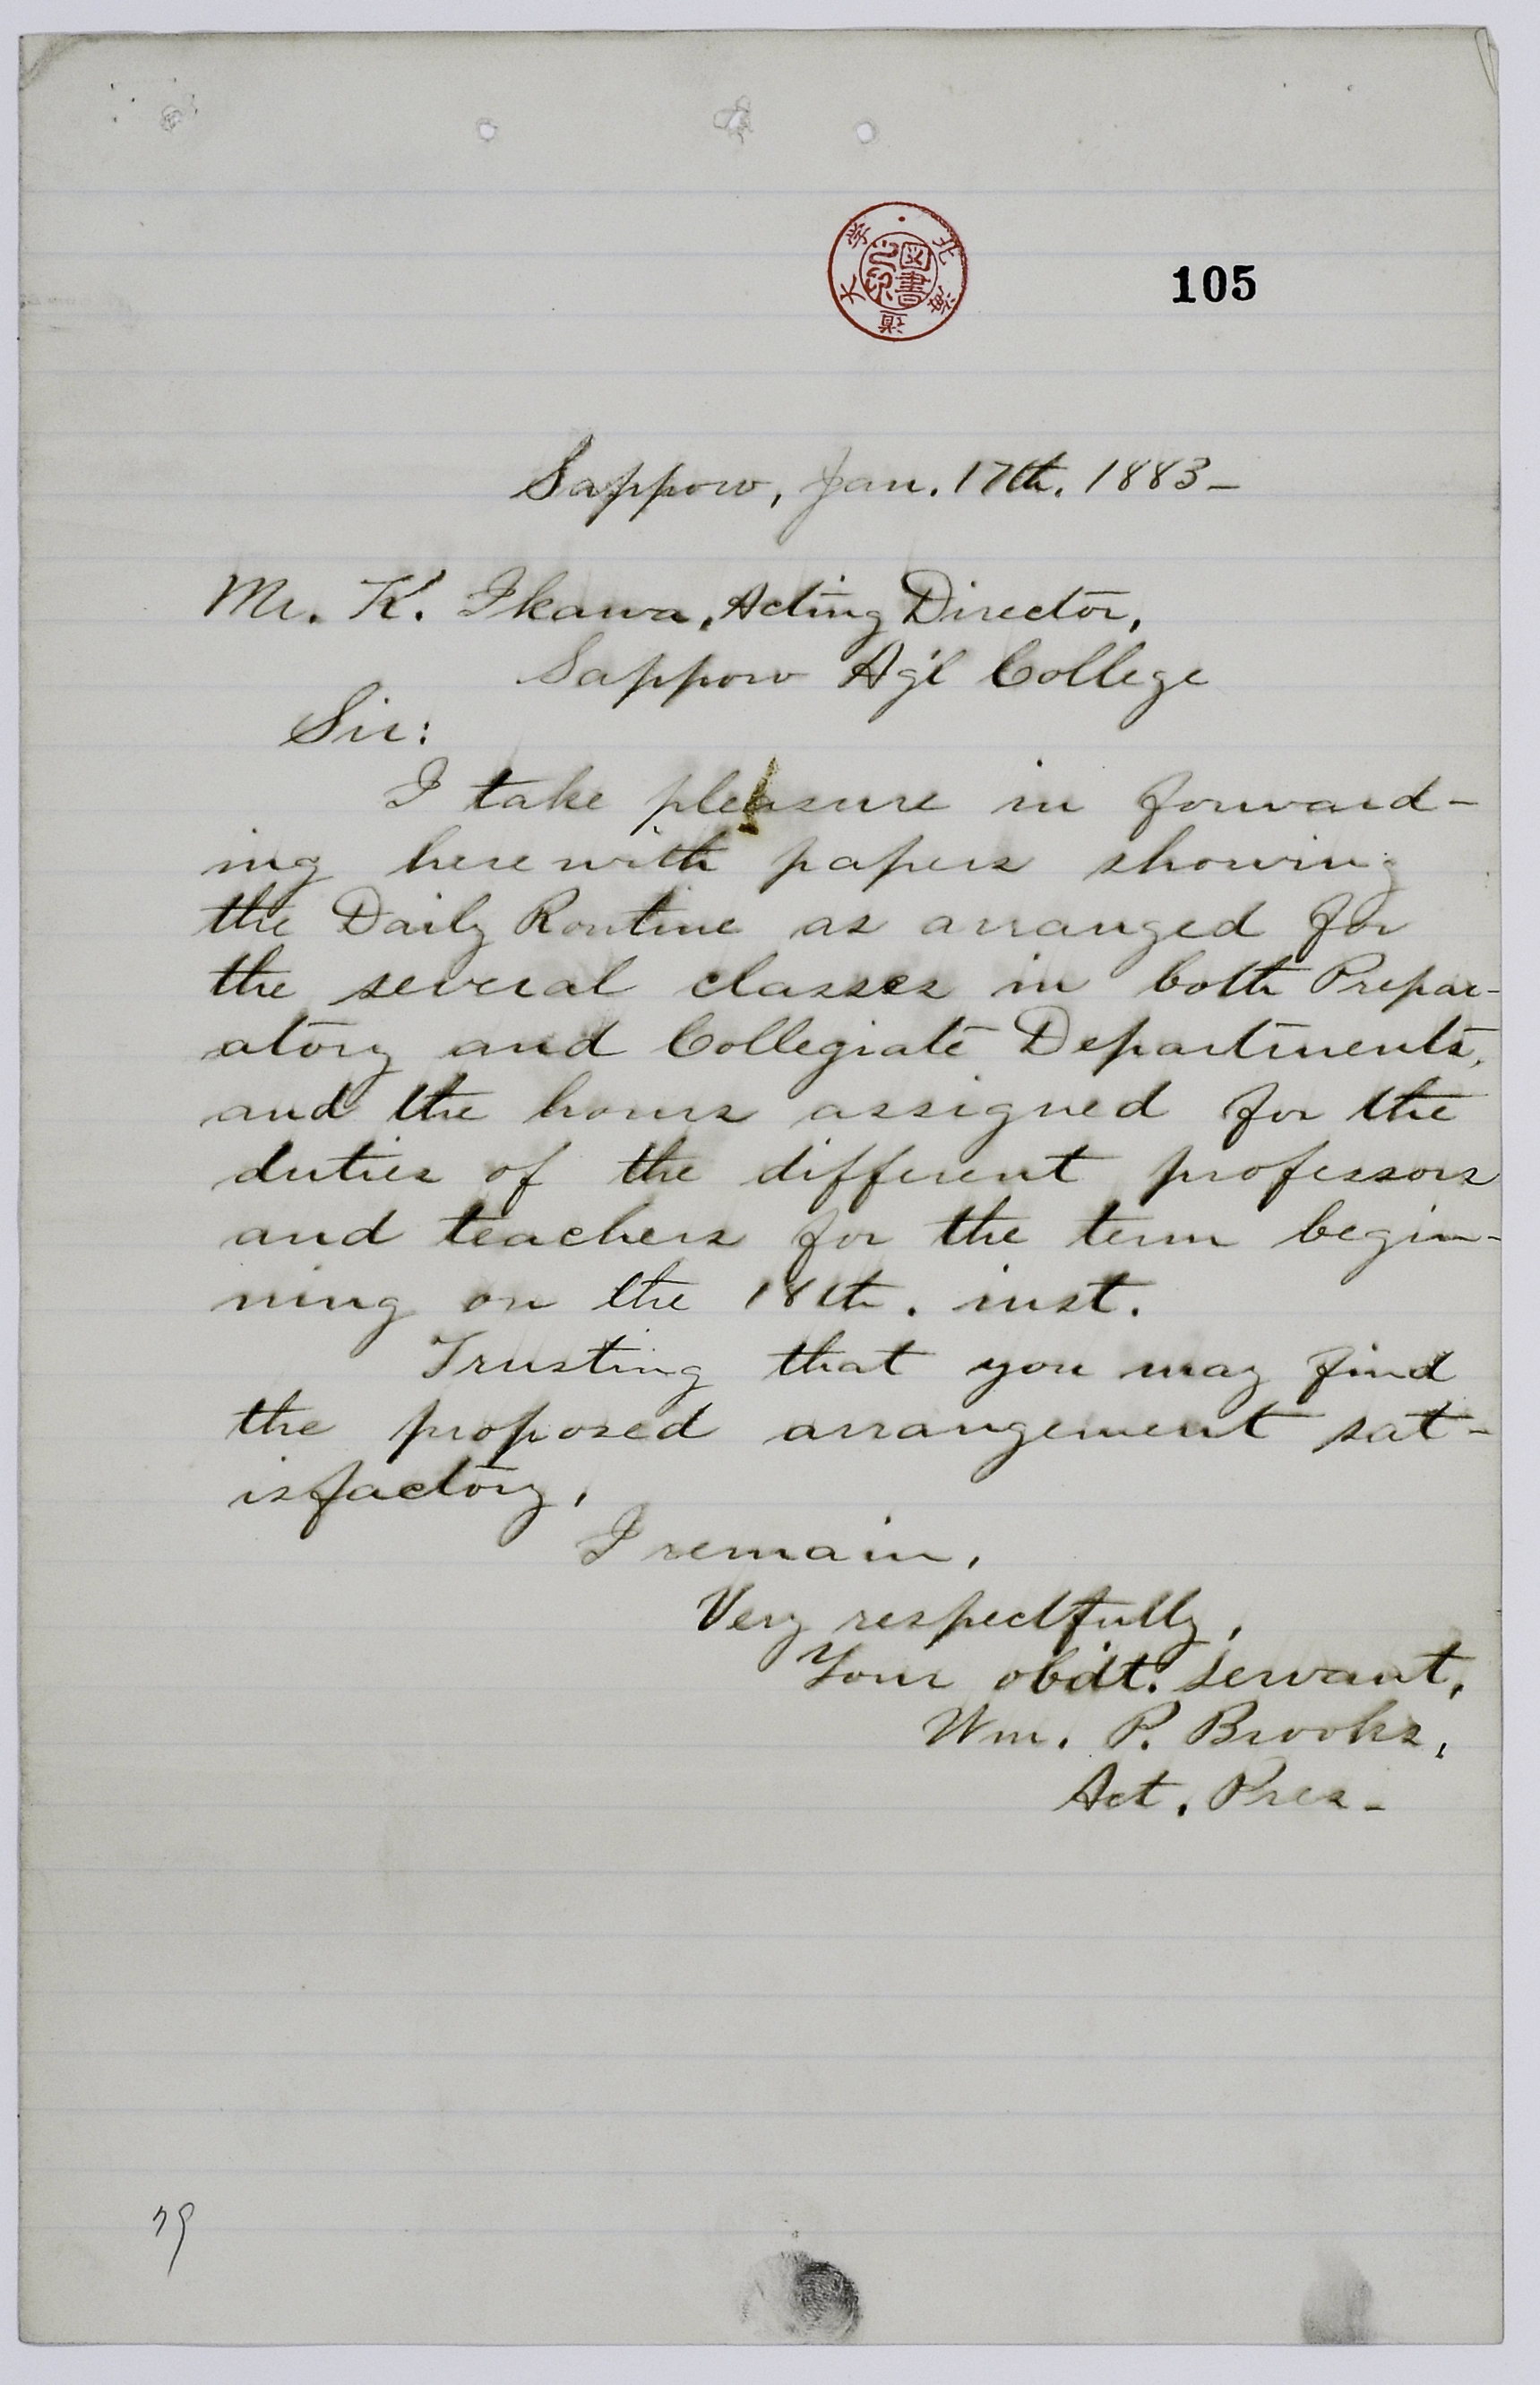 105
北海道大学
図書之印
Sapporo, Jan. 17th. 1883-
Mr. K. Ikawa, Acting Director,
Sapporo Ag'l College
Sir:
I take pleasure in forward-
ing herewith papers showing
the Daily Routine as arranged for
the several classes in both Prepar-
atory and Collegiate Departments,
and the hours assigned for the
duties of the different professors
and teachers for the term begin-
ning on the 18th. inst.
Trusting that you may find
the proposed arrangement sat-
isfactory,
I remain,
Very respectfully,
Your obdt. servant,
Wm. P. Brooks,
Act. Pres-
79